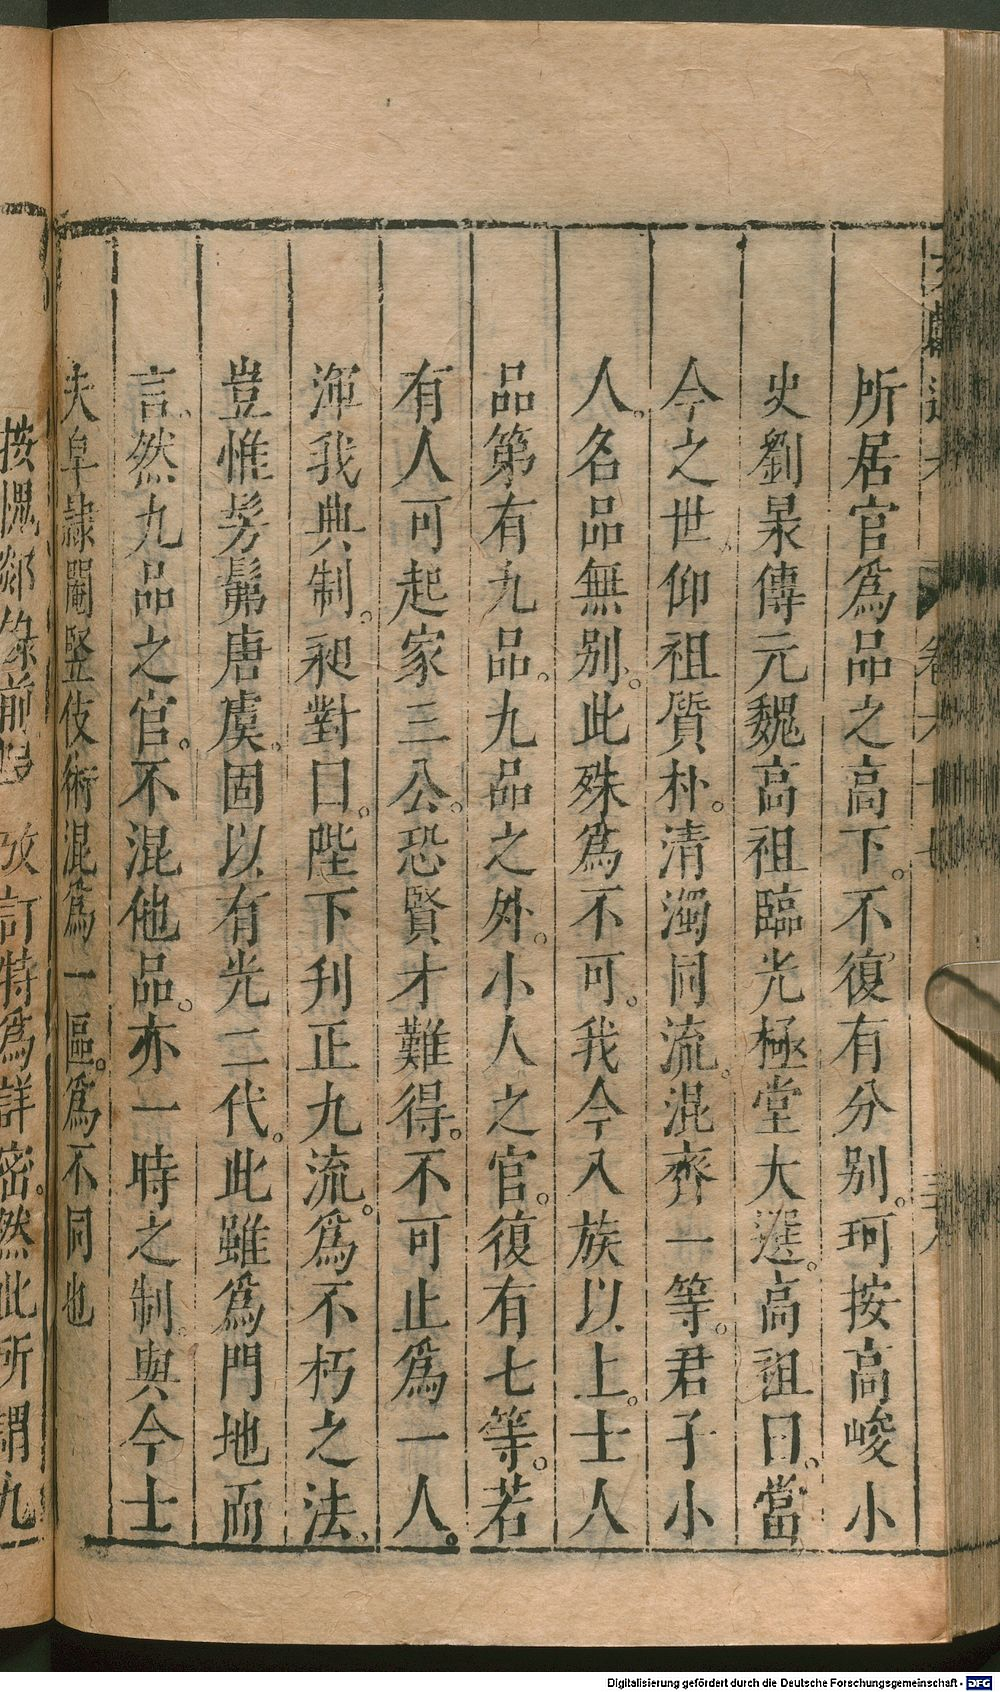 文獻通考 卷六十七
所居官爲品之高下。不復有分別。珂按高峻小
史劉杲傳元魏高祖臨光極堂大選。高祖曰。當
今之世、仰祖質朴。清濁同流。混齊一等。君子小
人。名品無別。此殊爲不可。我今入族以上。士人
品第有九品。九品之外。小人之官。復有七等。若
有人可起家三公。恐賢才難得。不可止爲一人。
渾我典制。昶對曰。陛下刋正九流。爲不朽之法。
豈惟髣髴唐虞。固以有光二代。此雖爲門地而
言。然九品之官。不混他品。亦一時之制。與今士
夫阜隸閹竪伎術混爲一區。爲不同也
按愧郯錄前段攷訂特爲詳密。然此所謂九
Digitalisierung gefördert durch die Deutsche Forschungsgemeinschaft - DFG